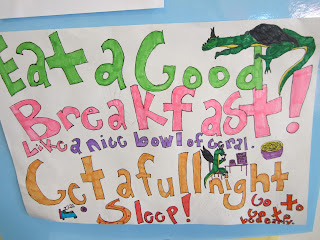 Eat a Good
Breakfast!
Like a nice bowl of ceral.
Get a full night
Sleep!
Go to